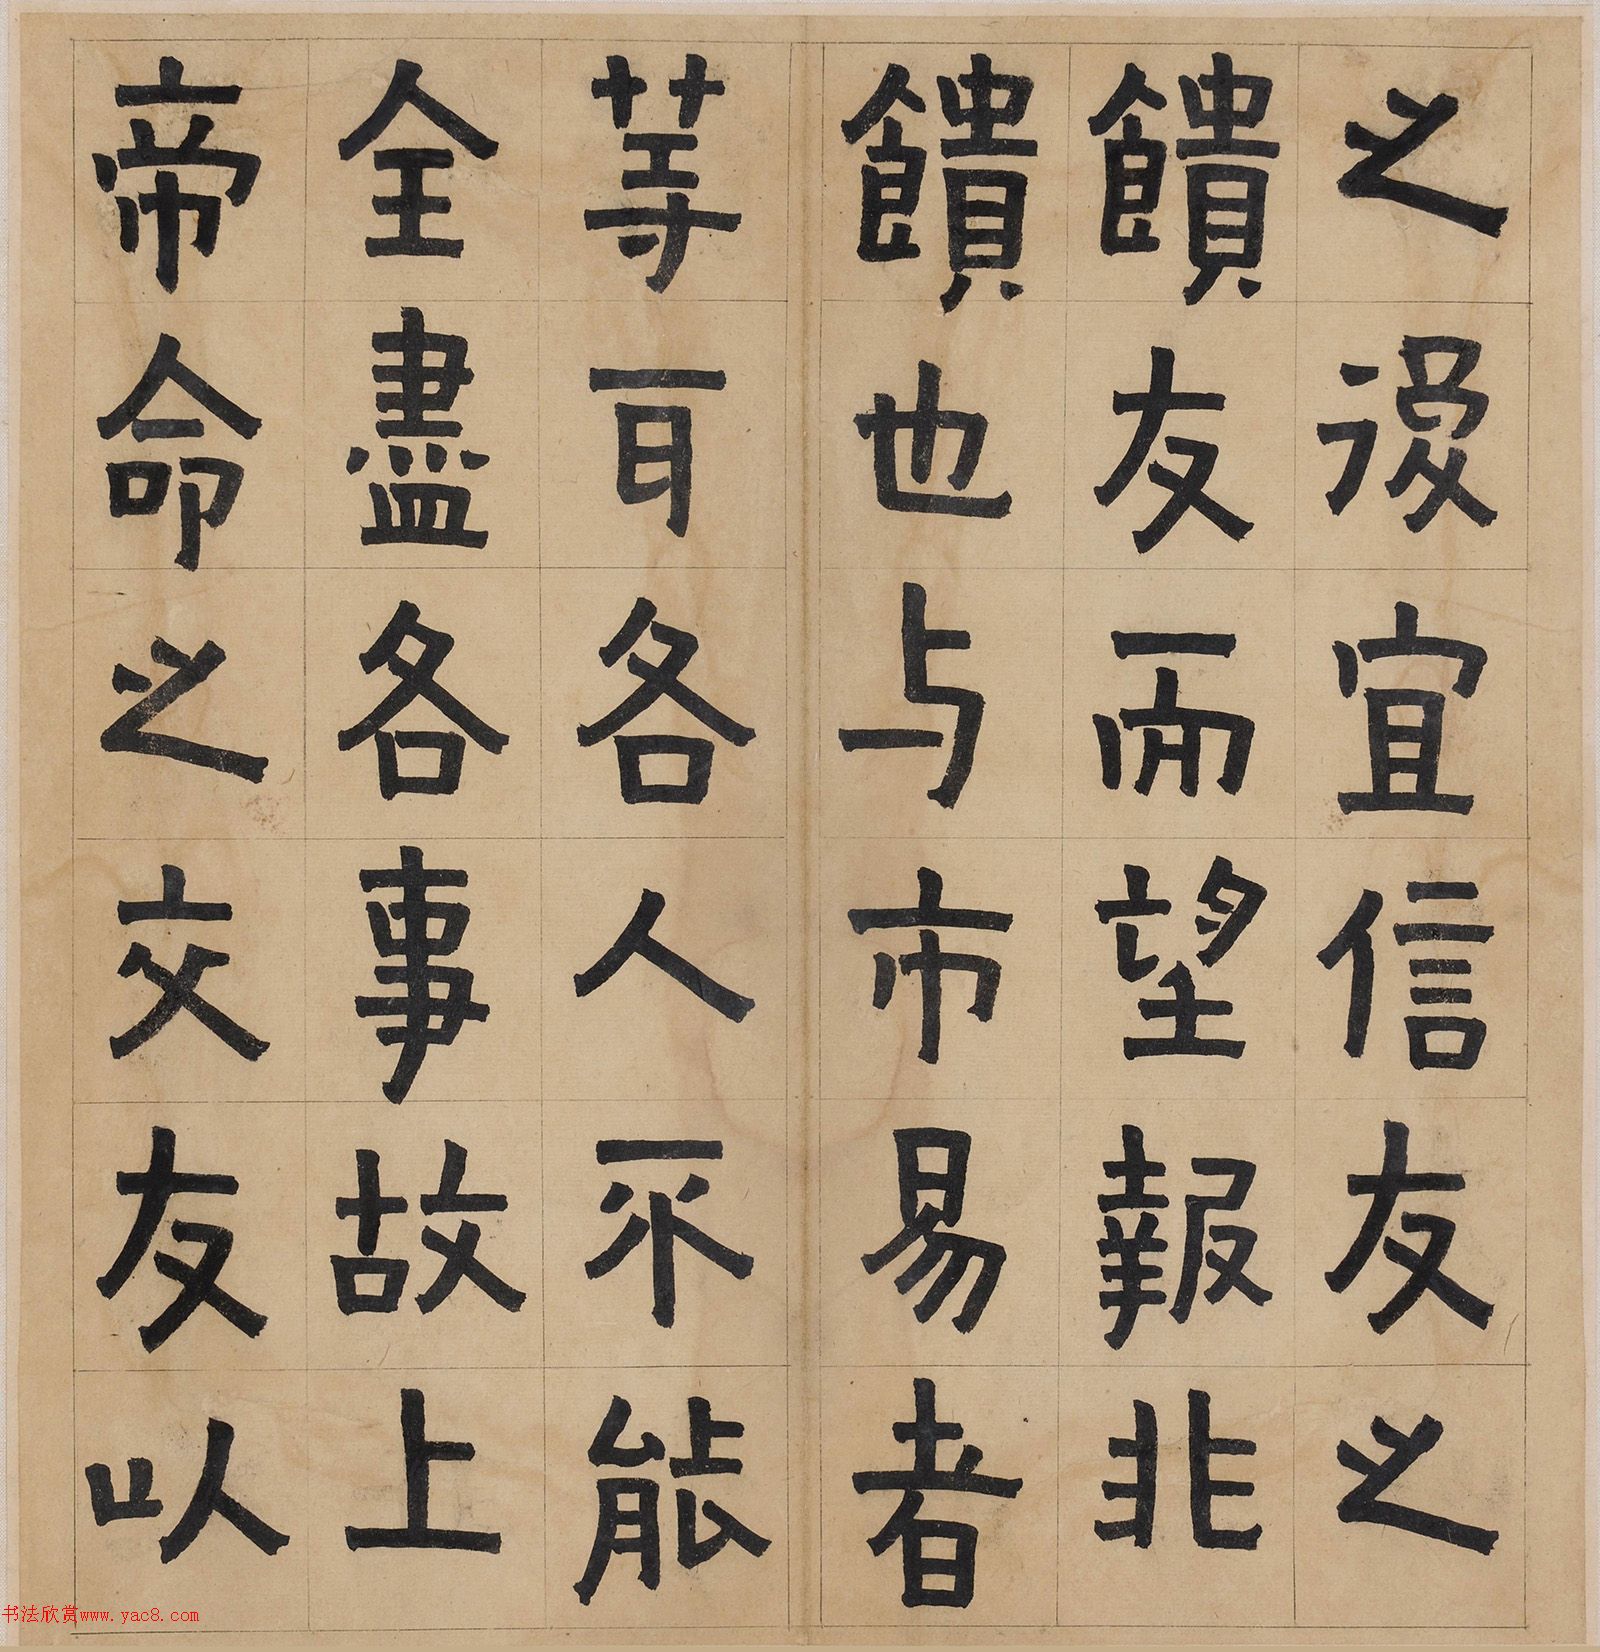 之後宜信友之
饋友而望報非
饋也与市易者
等耳各人不能
全盡各事故上
帝命之交友以
书法欣赏www.yac8.com